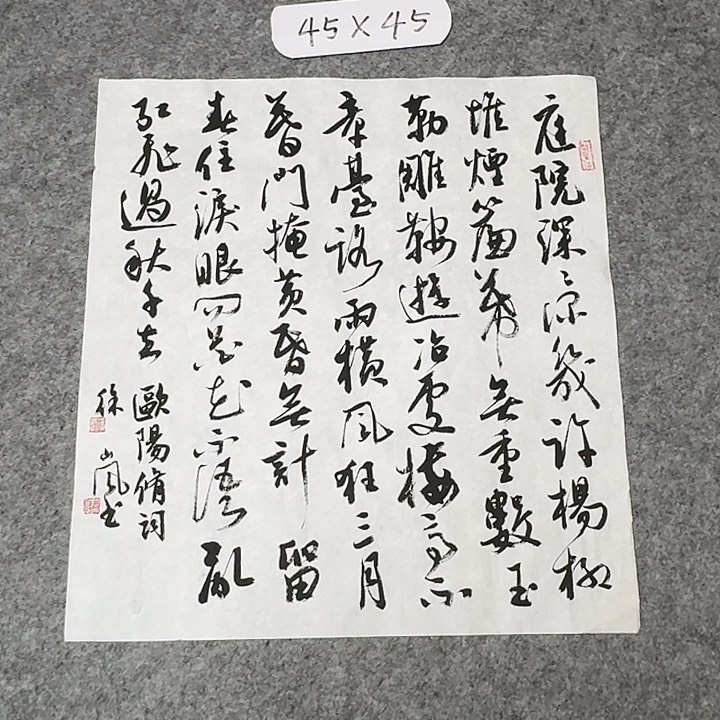 45×45
庭院深〻深幾許楊柳
堆煙簾幕無重數玉
勒雕鞍遊冶處樓高不
章臺路雨橫風狂三月
暮門掩黃昏無計留
春住淚眼問花花不語亂
紅飛過秋千去 歐陽脩詞
徐嵐书